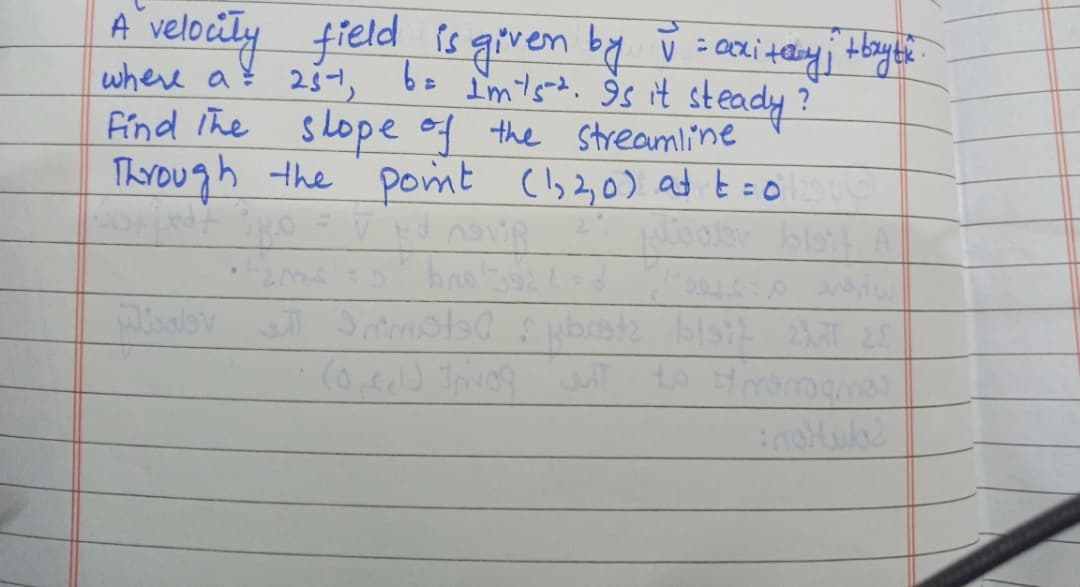 A velocity field is given by v⃗ = axi + ayĵ + bxytk̂.
where a = 2s-1, b = 1m-1s-2. Is it steady?
Find The slope of the streamline
Through the point (1,2,0) at t = 0